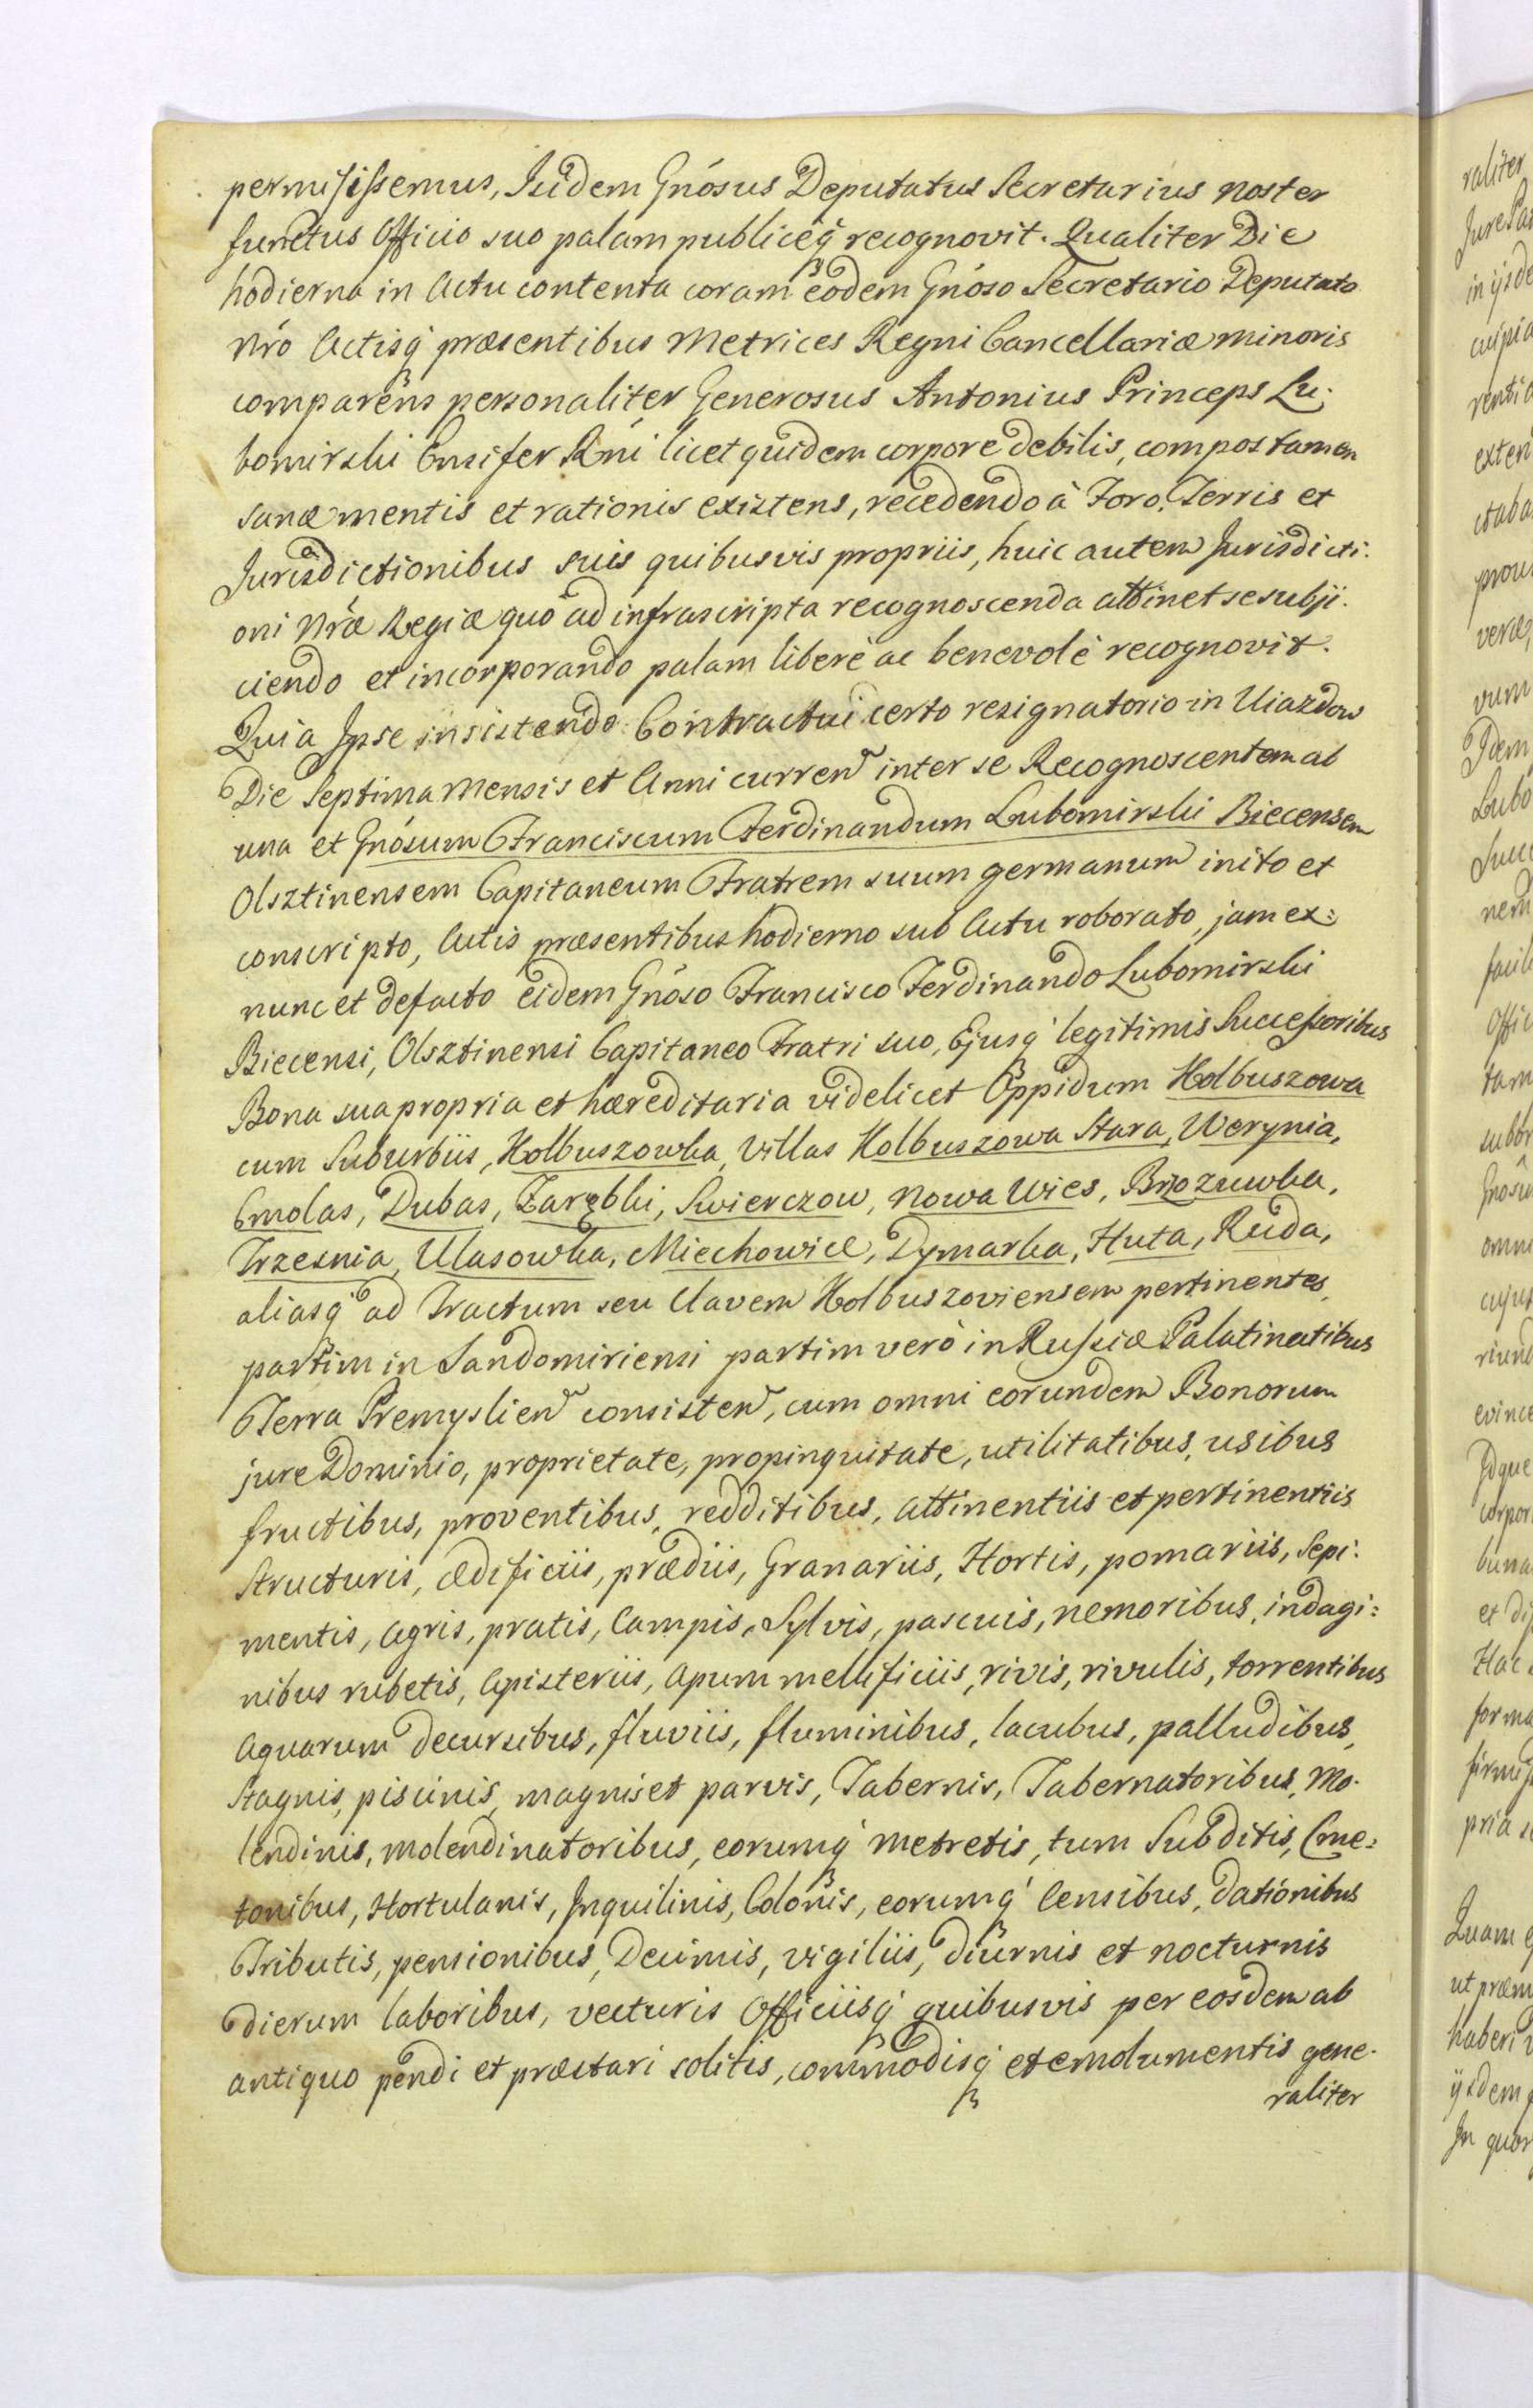 permisissemus, Iidem Gnósus Deputatus Secretarius noster
functus Officio suo palam publiceq́ recognovit. Qualiter Die
hodierna in Actu contenta coram eodem Gnóso Secretario Deputato
Nró Actisq́ præsentibus Metrices Regni Cancellariæ minoris
comparens personaliter Generosus Antonius Princeps Lu-
bomirski Ensifer Rni licet quidem corpore debilis, compos tamen
sanæ mentis et rationis existens, recedendo à Foro, Terris et
Jurisdictionibus suis quibusvis propriis, huic autem Jurisdicti-
oni Nræ Regiæ quo ad infrascripta recognoscenda attinet se subji-
ciendo et incorporando palam liberè ac benevolè recognovit.
Quia Ipse insistendo Contractui certo resignatorio in Uiazdow
Die Septima Mensis et Anni curren inter se Recognoscentem ab
una et Gnósum Franciscum Ferdinandum Lubomirski Biecensem
Olsztinensem Capitaneum Fratrem suum germanum inito et
conscripto, Actis præsentibus hodierno sub Actu roborato, jam ex:
nunc et defacto eidem Gnóso Francisco Ferdinando Lubomirski
Biecensi, Olsztinensi Capitaneo Fratri suo, Ejusq́ legitimis Successoribus
Bona sua propria et hæreditaria videlicet Oppidum Kolbuszowa
cum Suburbiis, Kolbuszowka, Villas Kolbuszowa Stara, Werynia,
Cmolas, Dubas, Zarębki, Swierczow, Nowa Wies, Brzozuwka,
Trzesnia, Ulasowka, Miechowice, Dymarka, Huta, Ruda,
aliasq́ ad Tractum seu Clavem Kolbuszoviensem pertinentes,
partim in Sandomiriensi partim verò in Russiæ Palatinatibus
Terra Premyslien consisten, cum omni eorundem Bonorum
jure Dominio, proprietate, propinquitate, utilitatibus, usibus
fructibus, proventibus, redditibus, attinentiis et pertinentiis
Structuris, ædificiis, prædiis, Granariis, Hortis, pomariis, Sepi-
mentis, Agris, pratis, Campis, Sylvis, pascuis, nemoribus, indagi:
nibus rubetis, Apisteriis, Apum mellificiis, rivis, rivulis, torrentibus
Aquarum decursibus, fluviis, fluminibus, lacubus, palludibus,
Stagnis, piscinis, magnis et parvis, Tabernis, Tabernatoribus, Mo-
lendinis, molendinatoribus, eorumq́ metretis, tum Subditis, Cme:
tonibus, Hortulanis, Inquilinis, Colonis, eorumq́ Censibus, dationibus
Tributis, pensionibus, Decimis, vigiliis, diurnis et nocturnis
dierum laboribus, vecturis Officiisq́ quibusvis per eosdem ab
antiquo pendi et præstari solitis, commodisq́ et emolumentis gene-
raliter